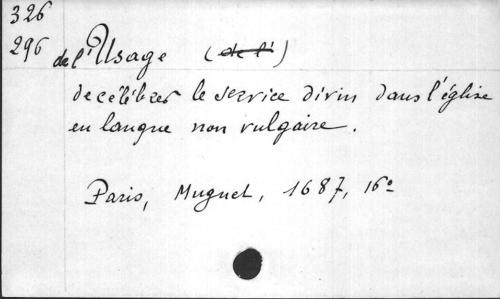 326
296 de l'Usage (de l')
de célébrer le service divin dans l'église
en langue non vulgaire.
Paris, Muguet, 1687, 16°